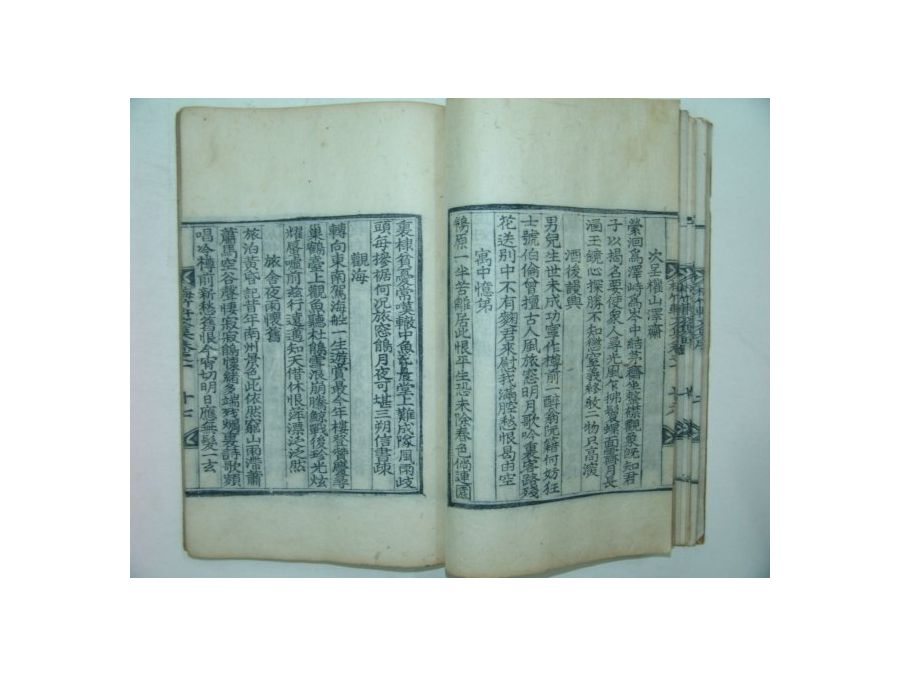 次呈櫂山澤齋
縈洄爲澤峙爲岑中結茅齋坐整襟觀象旣知君
子以揭名要使衆人尋光風乍拂髮蟬面霽月長
涵玉鏡心探勝不知窓室義終敎二物只高濱
酒後謾興
男兒生世未成功寧作樽前一醉翁阮籍何妨狂
士號伯倫曾擅古人風旅窓明月歌吟裏客路殘
花送別中不有麴君來慰我滿腔愁恨曷由空
寓中憶弟
鴒原一半苦離居此恨平生恐未除春色偏連園
裏棣貧憂常嘆轍中魚長堂上難成隊風雨歧
頭每摻裾何況旅窓鵑月夜可堪三朔信書疎
觀海
轉向東南駕海船一生遊賞最今年樓登營廨尋
巢鶴臺上觀魚聽杜鵑雪浪崩騰鯨戰後珍光炫
耀蜃噓前玆行遠遇知天借休恨萍漂泛泛然
旅舍夜雨懷舊
旅泊黃昏記昔年南州景色此依然窮山雨滯蕭
蕭馬空谷聲悽寂寂鵑懷緖多端殘燭裏詩歌頻
唱冷樽前新愁舊恨今宵切明日應無髮一玄